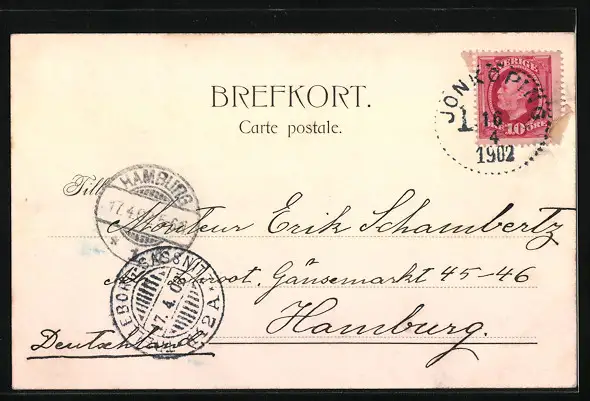 BREFKORT.
Carte postale.
SVERIGE
10 ÖRE
JÖNKÖPING
1
16
4
1902
HAMBURG
17.4.0
* 1 *
Till
Monsieur Erik Schambertz
Gänsemarkt 45-46
Hamburg.
Deutschland
SASSNITZ
17.4.02
82A